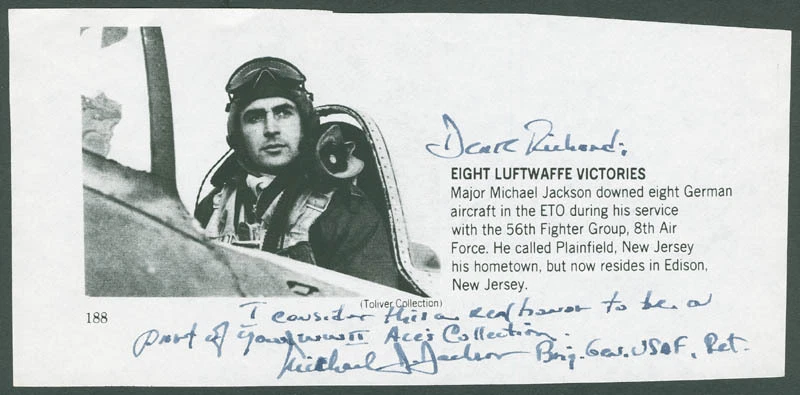 Dear Richard:
EIGHT LUFTWAFFE VICTORIES
Major Michael Jackson downed eight German
aircraft in the ETO during his service
with the 56th Fighter Group, 8th Air
Force. He called Plainfield, New Jersey
his hometown, but now resides in Edison,
New Jersey.
(Toliver Collection)
188
I consider this a real honor to be a
part of your WWII Ace's Collection.
Michael J. Jackson Brig. Gen. USAF, Ret.